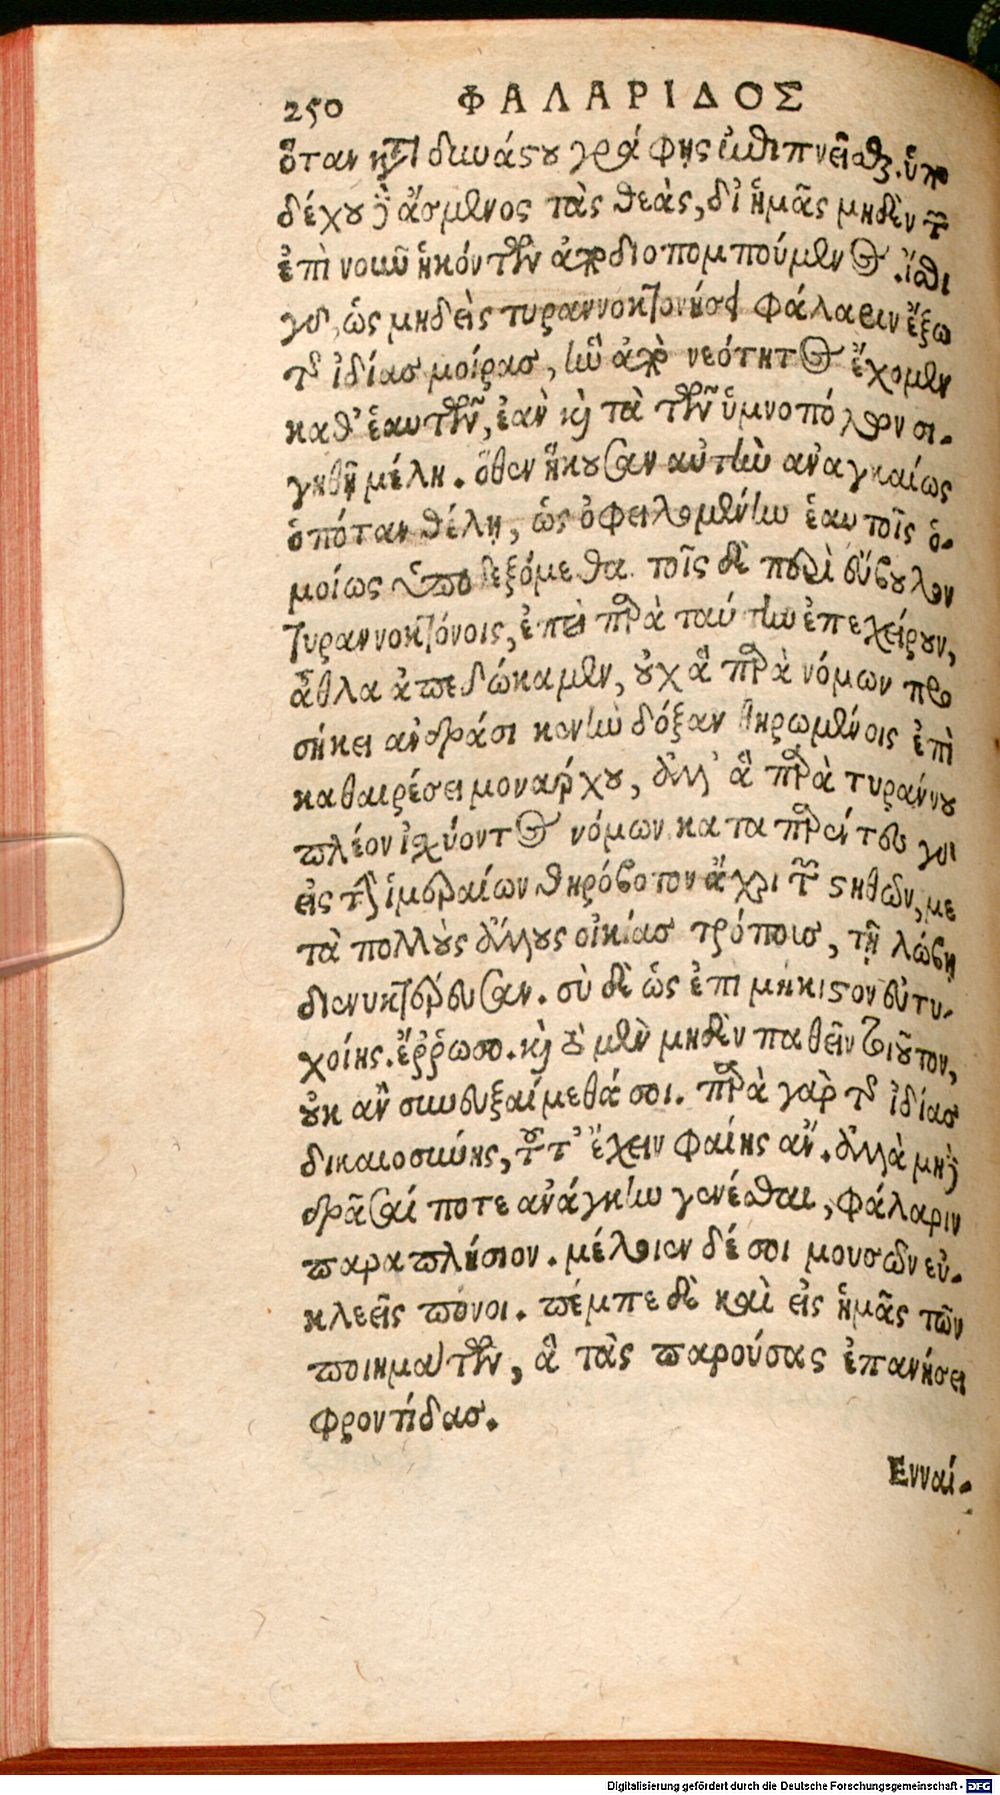 250 ΦΑΛΑΡΙΔΟΣ
ὅταν κατὰ δυνάστου γράφῃς ἐκθι πνεῖσθαι. ὑπο
δέχου δὲ ἄσμενος τὰς θεὰς, δι' ἡμᾶς μηδὲν τῶν
ἐπὶ νοῦν ἡκόντων ἀποδιοπομπούμενος. ἴσθι
γὰρ, ὡς μηδεὶς τυραννοκτονήσει Φάλαριν ἔξω
τῆς ἰδίας μοίρας, ἣν ἀπὸ νεότητος ἔχομεν
καθ' ἑαυτῶν, ἐὰν καὶ τὰ τῶν ὑμνοπόλων σι-
γηθῇ μέλη. ὅθεν ἥκουσαν αὐτὴν ἀναγκαίως
ὁπόταν θέλῃ, ὡς ὀφειλομένην ἑαυτοῖς ὁ-
μοίως ὑποδεξόμεθα. τοῖς δὲ περὶ εὔβουλον
τυραννοκτόνοις, ἐπεὶ παρὰ ταύτην ἐπεχείρουν,
ἆθλα ἀπεδώκαμεν, οὐχ ἃ παρὰ νόμων προ
σήκει ἀνδράσι κενὴν δόξαν θηρωμένοις ἐπὶ
καθαιρέσει μονάρχου, ἀλλ' ἃ παρὰ τυράννου
πλέον ἰσχύοντος νόμων. καταπαρέντες γὰρ
εἰς τὸν ἱμεραίων θηρόβοτον ἄχρι τῶν στηθῶν, με
τὰ πολλοὺς ἄλλους αἰκίας τρόπους, τῇ λώβῃ
διενυκτέρευσαν. σὺ δὲ ὡς ἐπὶ μήκιστον εὐτυ-
χοίης. ἔῤῥωσο. καὶ τὸ μὲν μηδὲν παθεῖν τοιοῦτον,
οὐκ ἂν συνευξαίμεθά σοι. παρὰ γὰρ τῆς ἰδίας
δικαιοσύνης, τοῦτ' ἔχειν φαίης ἄν. ἀλλὰ μὴ δὲ
δρᾶσαί ποτε ἀνάγκην γενέσθαι, Φάλαριν
παραπλήσιον. μέλοιεν δέ σοι μουσῶν εὐ-
κλεεῖς πόνοι. πέμπε δὲ καὶ εἰς ἡμᾶς τῶν
ποιημάτων, ἃ τὰς παρούσας ἐπανήσει
φροντίδας.
Ενναί-
Digitalisierung gefördert durch die Deutsche Forschungsgemeinschaft - DFG